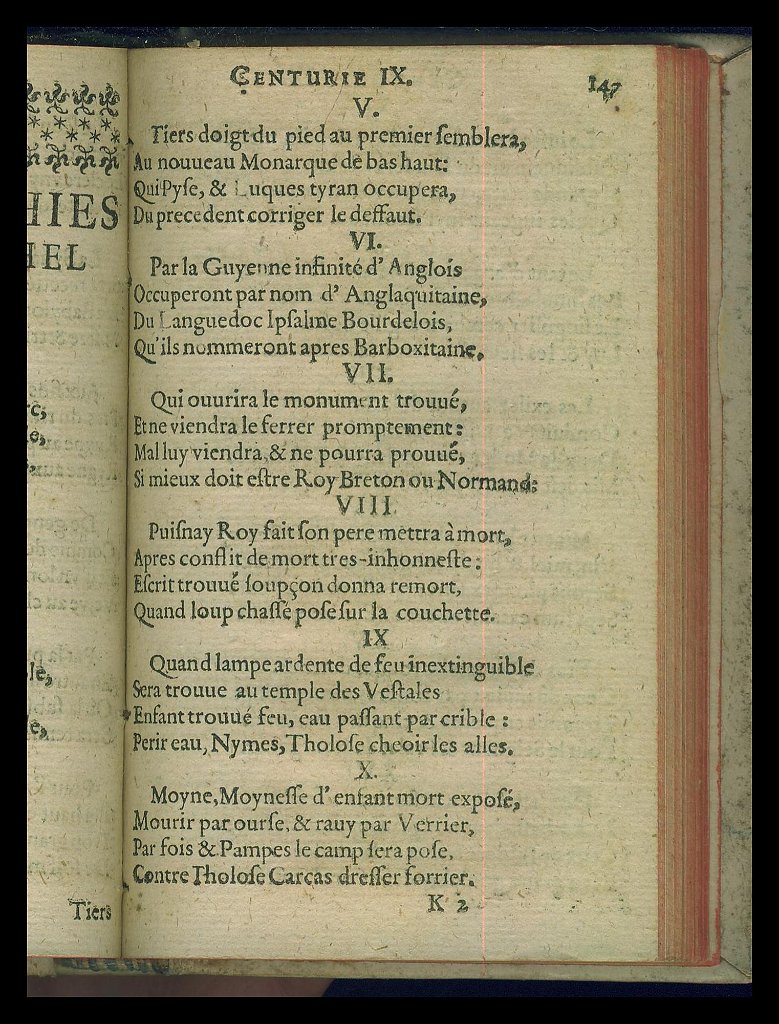 HIES
HEL
rc,
e,
le,
e,
Tiers
CENTURIE IX. 147
V.
Tiers doigt du pied au premier ſemblera,
Au nouueau Monarque de bas haut:
Qui Pyſe, & Luques tyran occupera,
Du precedent corriger le deffaut.
VI.
Par la Guyenne infinité d' Anglois
Occuperont par nom d' Anglaquitaine,
Du Languedoc Ipſalme Bourdelois,
Qu'ils nommeront apres Barboxitaine.
VII.
Qui ouurira le monument trouué,
Et ne viendra le ferrer promptement:
Mal luy viendra & ne pourra prouué,
Si mieux doit eſtre Roy Breton ou Normand:
VIII
Puiſnay Roy fait ſon pere mettra à mort,
Apres conflit de mort tres-inhonneſte:
Eſcrit trouué ſoupçon donna remort,
Quand loup chaſſé poſe ſur la couchette.
IX
Quand lampe ardente de feu inextinguible
Sera trouue au temple des Veſtales
Enfant trouué feu, eau paſſant par crible:
Perir eau, Nymes, Tholoſe cheoir les alles.
X.
Moyne, Moyneſſe d' enfant mort expoſé,
Mourir par ourſe, & rauy par Verrier,
Par fois & Pampes le camp ſera poſe,
Contre Tholoſe Carcas dreſſer forrier.
K 2